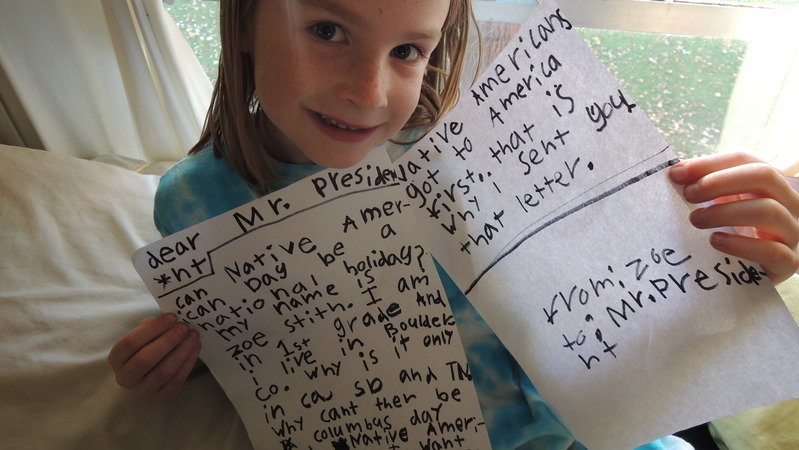 dear Mr. Presiden
*nt
can Native Amer-
ican Day be a
national holiday?
my name is
Zoe stith. I am
in 1st grade And
i live in Boulder
Co. Why is it only
in ca, SD and TN.
Why cant ther be
* columbus day
Native Ameri-
want
Native Americans
got to America
first.. that is
why i sent you
that letter.
From: Zoe
to: Mr. Preside-
nt